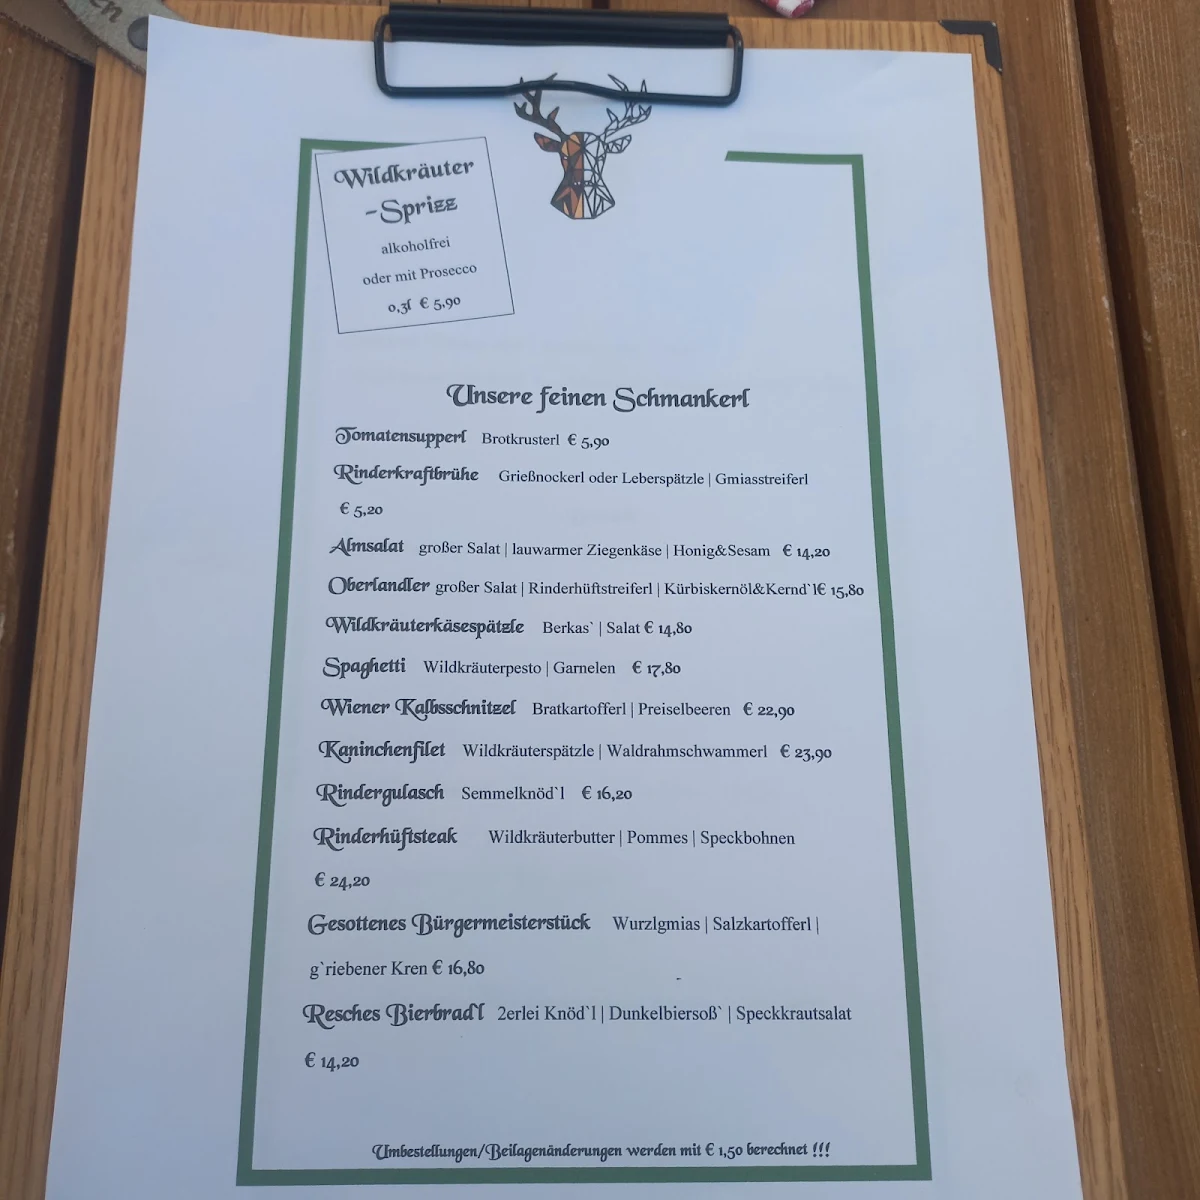 en
Wildkräuter
-Sprizz
alkoholfrei
oder mit Prosecco
0,3l € 5,90
Unsere feinen Schmankerl
Tomatensupperl Brotkrusterl € 5,90
Rinderkraftbrühe Grießnockerl oder Leberspätzle | Gmiasstreiferl
€ 5,20
Almsalat großer Salat | lauwarmer Ziegenkäse | Honig&Sesam € 14,20
Oberlandler großer Salat | Rinderhüftstreiferl | Kürbiskernöl&Kernd`l€ 15,80
Wildkräuterkäsespätzle Berkas` | Salat € 14,80
Spaghetti Wildkräuterpesto | Garnelen € 17,80
Wiener Kalbsschnitzel Bratkartofferl | Preiselbeeren € 22,90
Kaninchenfilet Wildkräuterspätzle | Waldrahmschwammerl € 23,90
Rindergulasch Semmelknöd`l € 16,20
Rinderhüftsteak Wildkräuterbutter | Pommes | Speckbohnen
€ 24,20
Gesottenes Bürgermeisterstück Wurzlgmias | Salzkartofferl |
g`riebener Kren € 16,80
Resches Bierbrad`l 2erlei Knöd`l | Dunkelbiersoß` | Speckkrautsalat
€ 14,20
Umbestellungen/Beilagenänderungen werden mit € 1,50 berechnet !!!